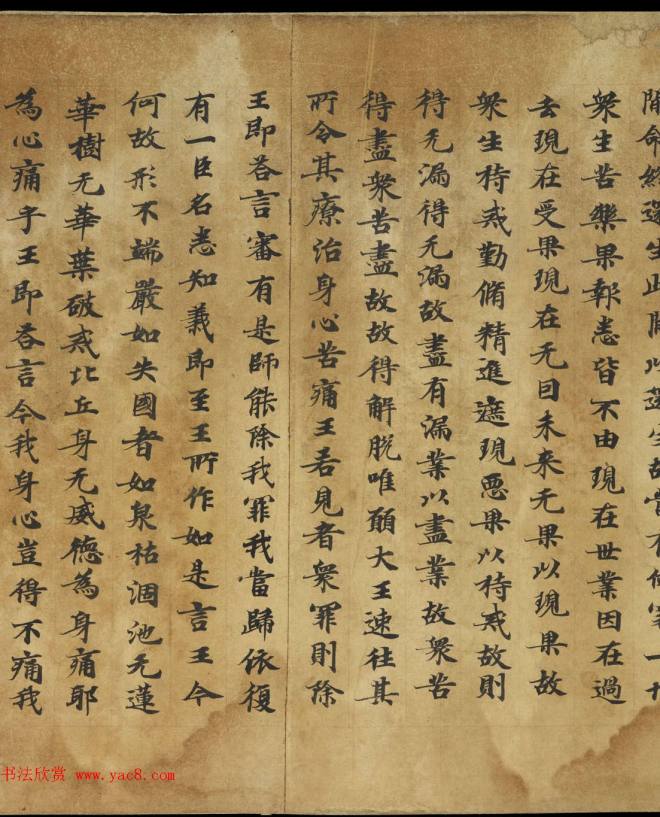 間命終還生此間以還生故
衆生苦樂果報悉皆不由現在世業因在過
去現在受果現在无因未来无果以現果故
衆生持戒勤脩精進遮現惡果以持戒故則
得无漏得无漏故盡有漏業以盡業故衆苦
得盡衆苦盡故故得解脫唯願大王速往其
所令其療治身心苦痛王若見者衆罪則除
王即荅言審有是師能除我罪我當歸依復
有一臣名悉知義即至王所作如是言王今
何故形不端嚴如失國者如泉枯涸池无蓮
華樹无華葉破戒比丘身无威德為身痛耶
為心痛乎王即荅言今我身心豈得不痛我
书法欣赏 www.yac8.com